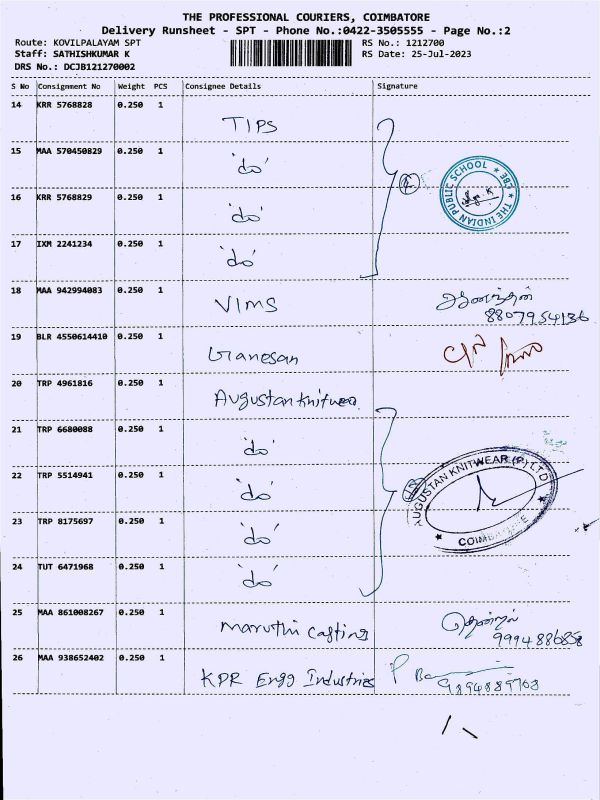 THE PROFESSIONAL COURIERS, COIMBATORE
Delivery Runsheet - SPT - Phone No.:0422-3505555 - Page No.:2
Route: KOVILPALAYAM SPT RS No.: 1212700
Staff: SATHISHKUMAR K RS Date: 25-Jul-2023
DRS No.: DCJB121270002
S No Consignment No Weight PCS Consignee Details Signature
14 KRR 5768828 0.250 1 TIPS
15 MAA 570450829 0.250 1 "do"
16 KRR 5768829 0.250 1 "do"
THE INDIAN PUBLIC SCHOOL ★ CBE ★
17 IXM 2241234 0.250 1 "do"
18 MAA 942994083 0.250 1 VIMS ஆனந்தன்
8807954136
19 BLR 4550614410 0.250 1 Ganesan
20 TRP 4961816 0.250 1 Augustan Knitwear
21 TRP 6680088 0.250 1 "do"
22 TRP 5514941 0.250 1 "do"
AUGUSTAN KNITWEAR (P) LTD ★ COIMBATORE ★
23 TRP 8175697 0.250 1 "do"
24 TUT 6471968 0.250 1 "do"
25 MAA 861008267 0.250 1 Maruthi Casting
9994886858
26 MAA 938652402 0.250 1 KPR Engg Industries
9894889708